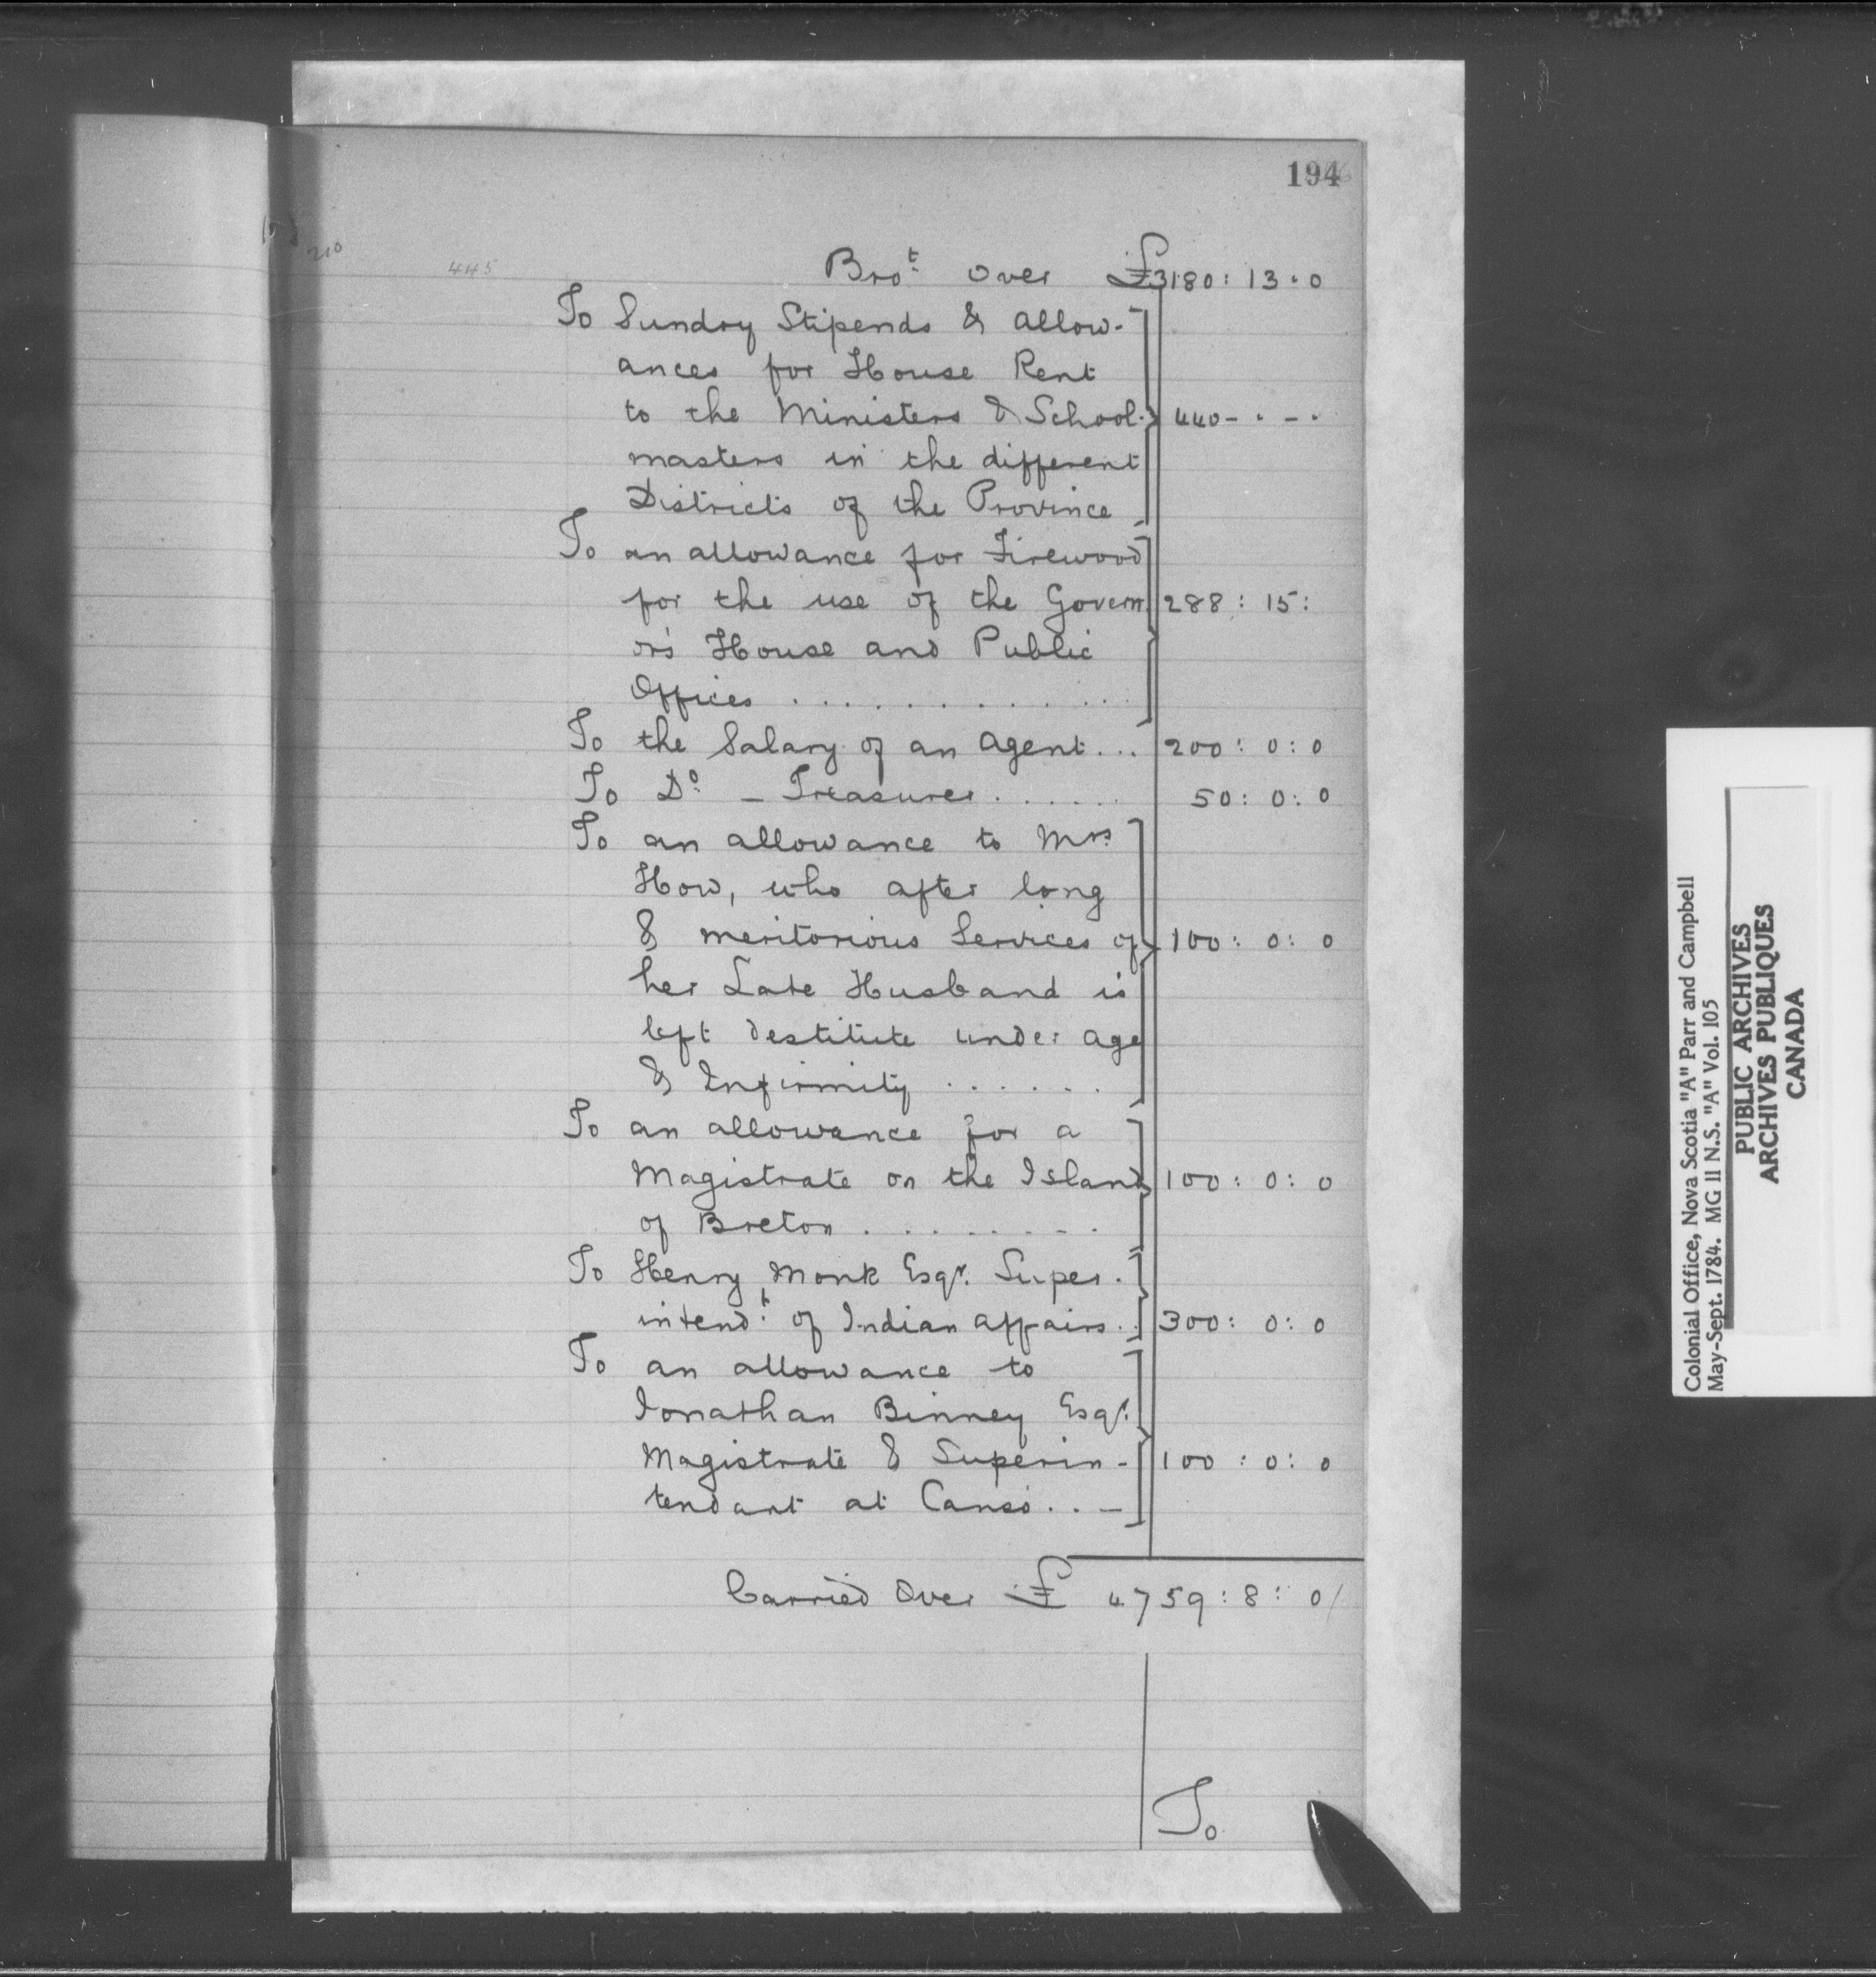 194
210
445
Bro.t over £3180 : 13 . 0
To Sundry Stipends & allow-
ances for House Rent
to the Ministers & School- 440 - . - .
masters in the different
Districts of the Province
To an allowance for Firewood
for the use of the Govern 288 : 15 :
or's House and Public
Offices . . . . . . . . . . . .
To the Salary of an Agent... 200 : 0 : 0
To Do. - Treasurer . . . . . . 50 : 0 : 0
To an allowance to Mrs.
How, who after long
& meritorious Services of 100 : 0 : 0
her Late Husband is
left destitute under age
& Infirmity . . . . . .
To an allowance for a
Magistrate on the Island 100 : 0 : 0
of Breton . . . . . . . . .
To Henry Monk Esqr. Super-
intendt. of Indian affairs.. 300 : 0 : 0
To an allowance to
Jonathan Binney Esqr.
Magistrate & Superin- 100 : 0 : 0
tendant at Canso . . -
Carried Over £ 4759 : 8 : 0/
To
Colonial Office, Nova Scotia "A" Parr and Campbell
May-Sept. 1784. MG 11 N.S. "A" Vol. 105
PUBLIC ARCHIVES
ARCHIVES PUBLIQUES
CANADA